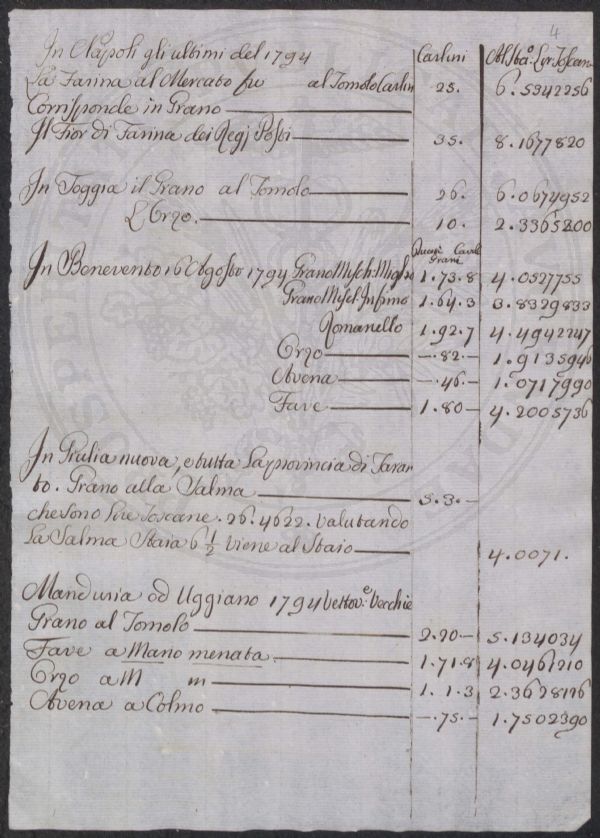 4
In Napoli gli ultimi del 1794 Carlini Al Sta.º Lir Toscan
La Farina al Mercato fu al Tomolo Carlin 28. 6.5342256
Corrisponde in Grano
Il Fior di Farina dei Regj Posti 35. 8.1677820
In Foggia il Grano al Tomolo 26. 6.0674952
L'Orzo. 10. 2.3365200
Ducati Grani Caval
In Benevento 16 Agosto 1794 Grano Misch: Miglio 1.73.8 4.0527755
Grano Misch Infimo 1.64.3 3.8329833
Romanello 1.92.7 4.4942247
Orzo —.82.— 1.9135946
Avena —.46.— 1.0717990
Fave 1.80— 4.2005736
In Giulia nuova, e tutta La provincia di Taran
to. Grano alla Salma 5.3.—
che sono Lire Toscane. 26.4622. valutando
La Salma Staia 6 1/2 viene al Staio 4.0071.
Manduria od Uggiano 1794 Vettov.e Vecchie
Grano al Tomolo 2.20— 5.134034
Fave a Mano menata 1.71.8 4.0461210
Orzo a M m 1.1.3 2.3628116
Avena a Colmo —.75.— 1.7502390